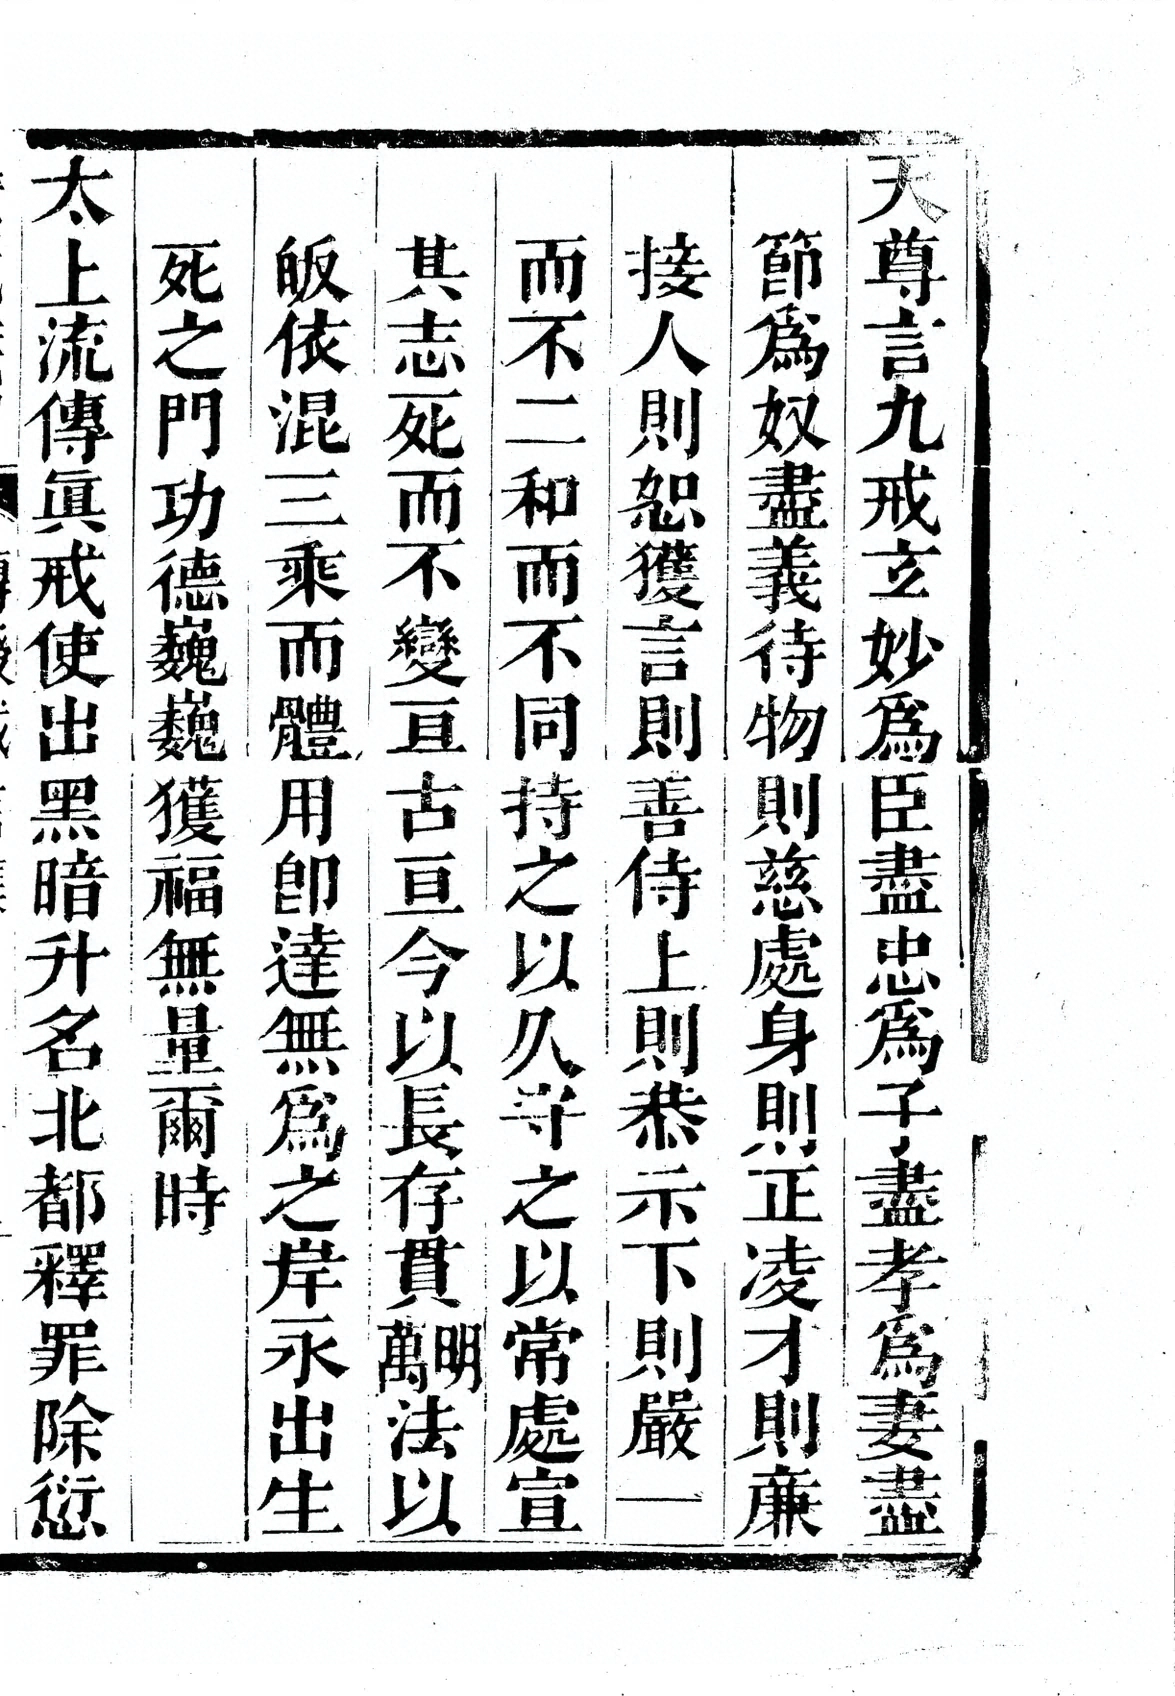 天尊言九戒玄妙爲臣盡忠爲子盡孝爲妻盡
節爲奴盡義待物則慈處身則正凌才則廉
接人則恕獲言則善侍上則恭示下則嚴一
而不二和而不同持之以久守之以常處宣
其志死而不變亘古亘今以長存貫明萬法以
皈依混三乘而體用卽達無爲之岸永出生
死之門功德巍巍獲福無量爾時
太上流傳眞戒使出黑暗升名北都釋罪除愆